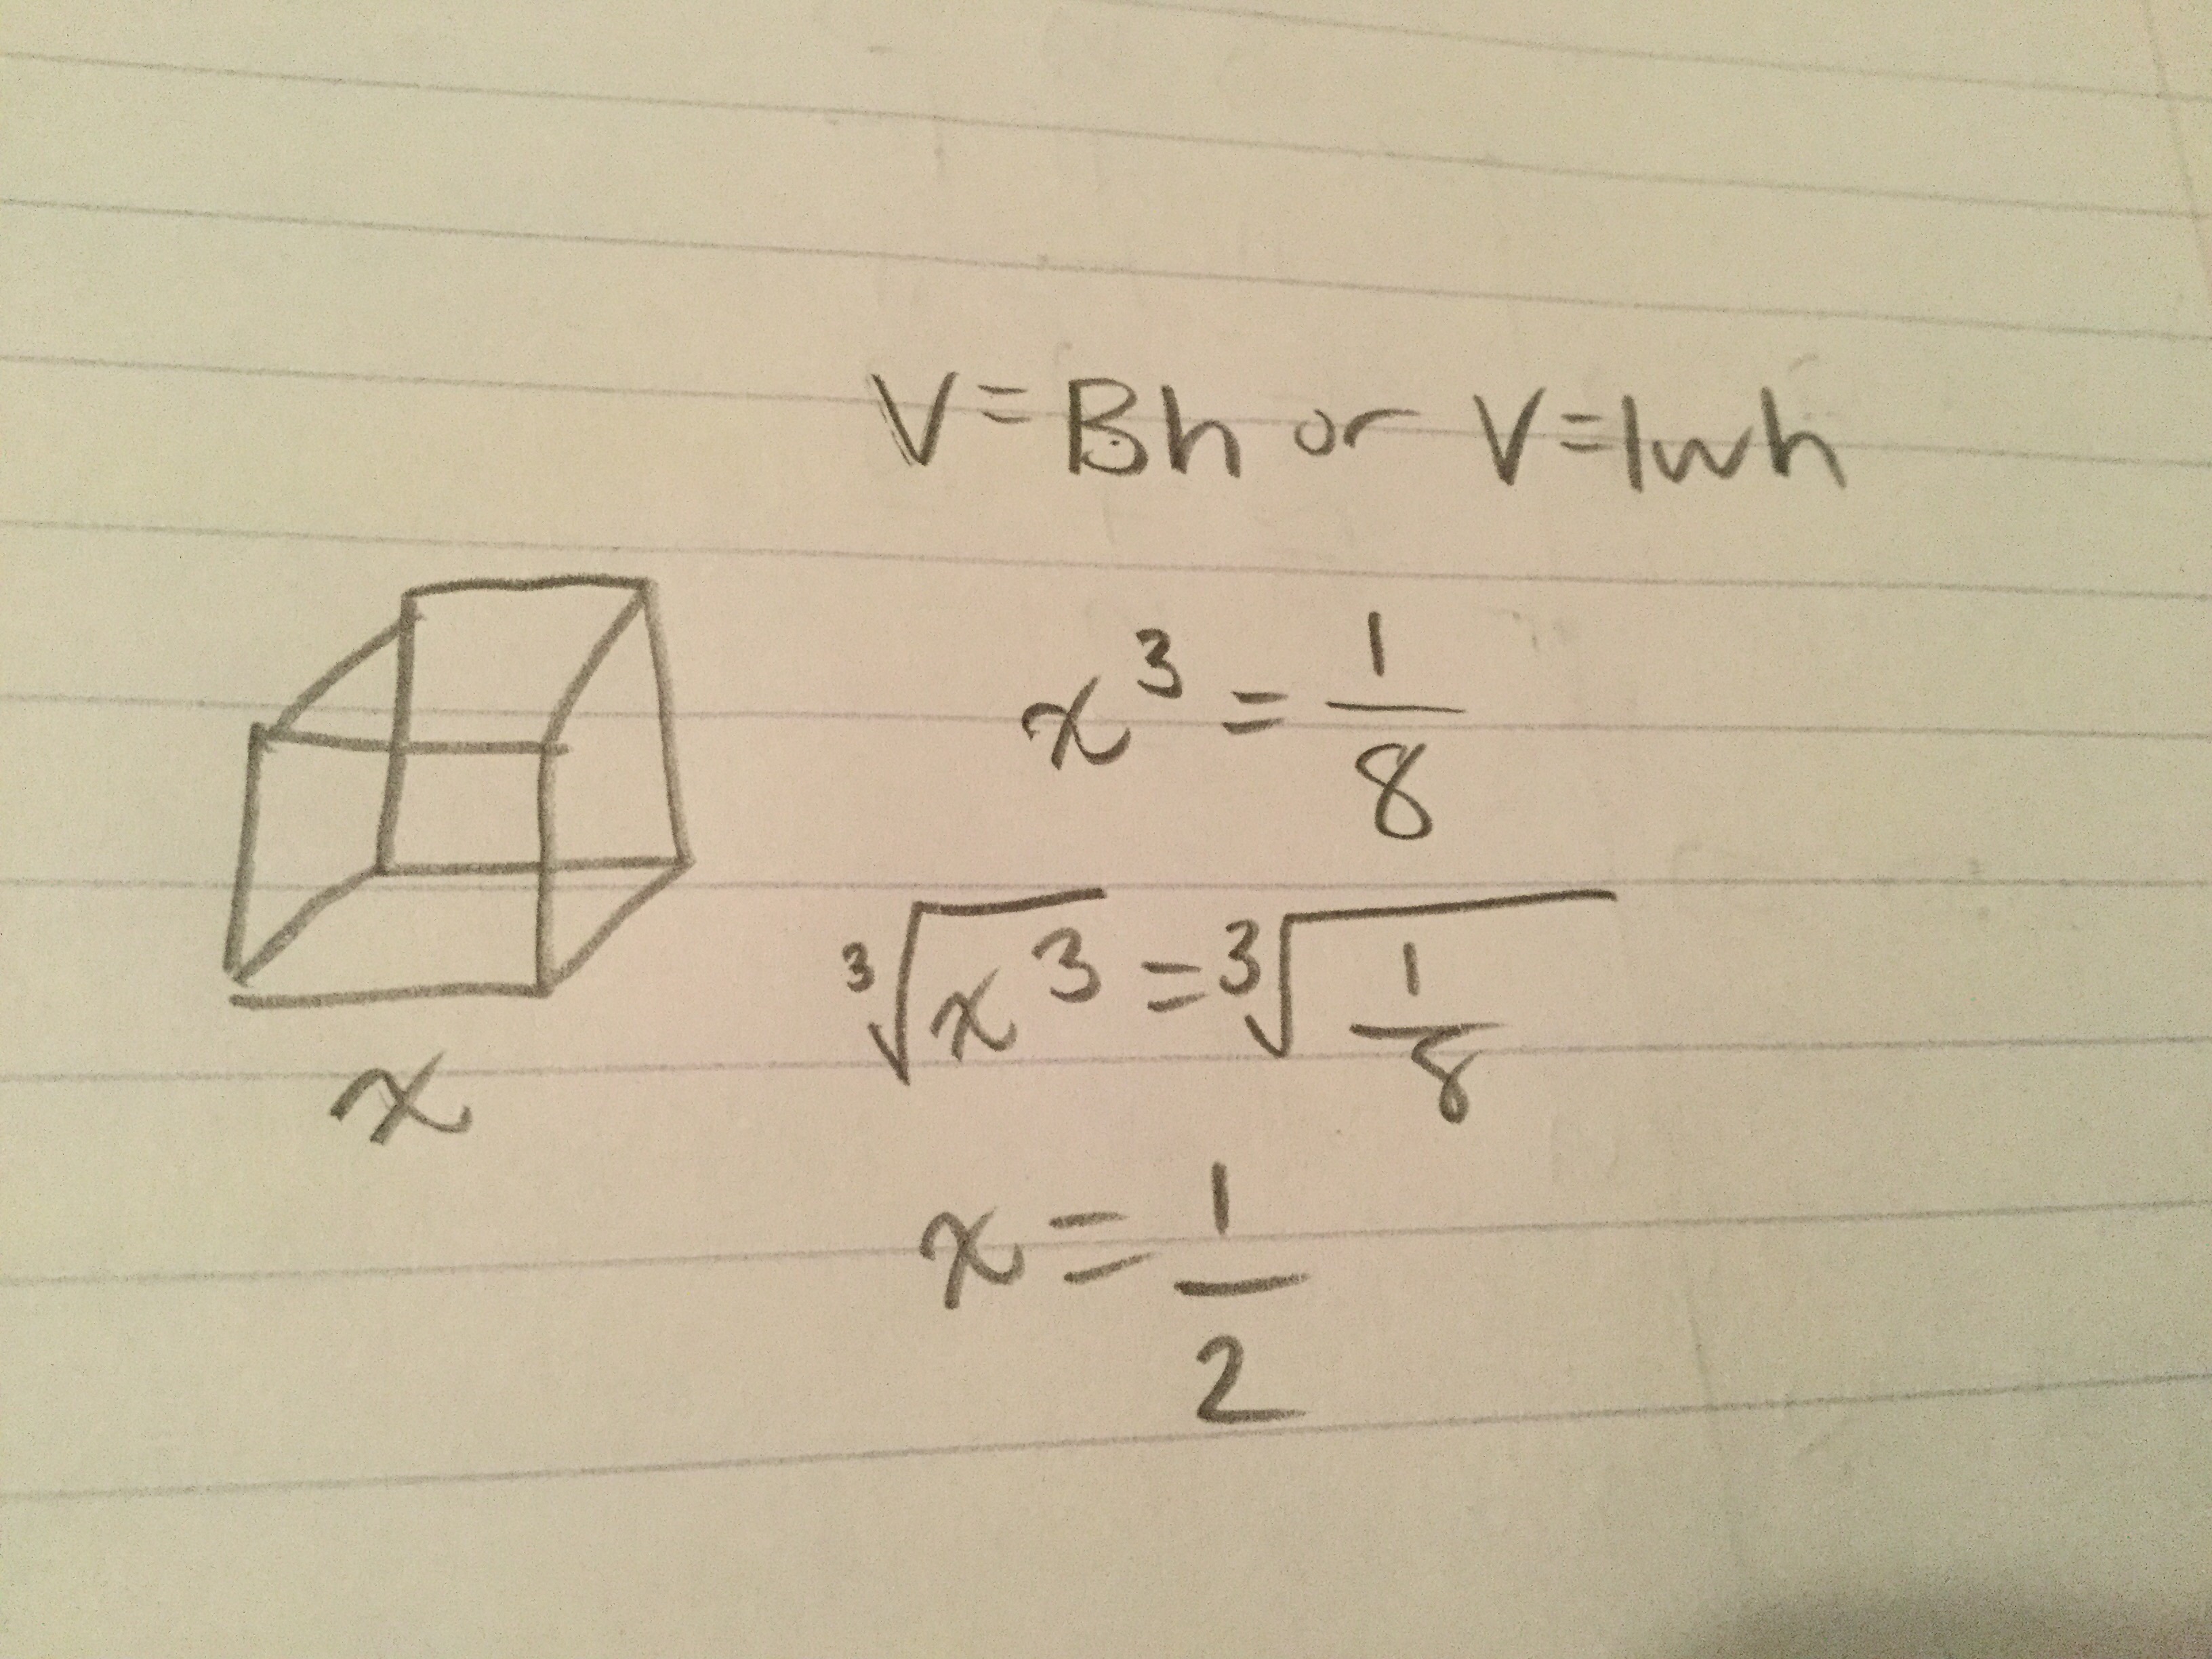 V = Bh or V = lwh
x³ = 1/8
∛x³ = ∛1/8
x
x = 1/2